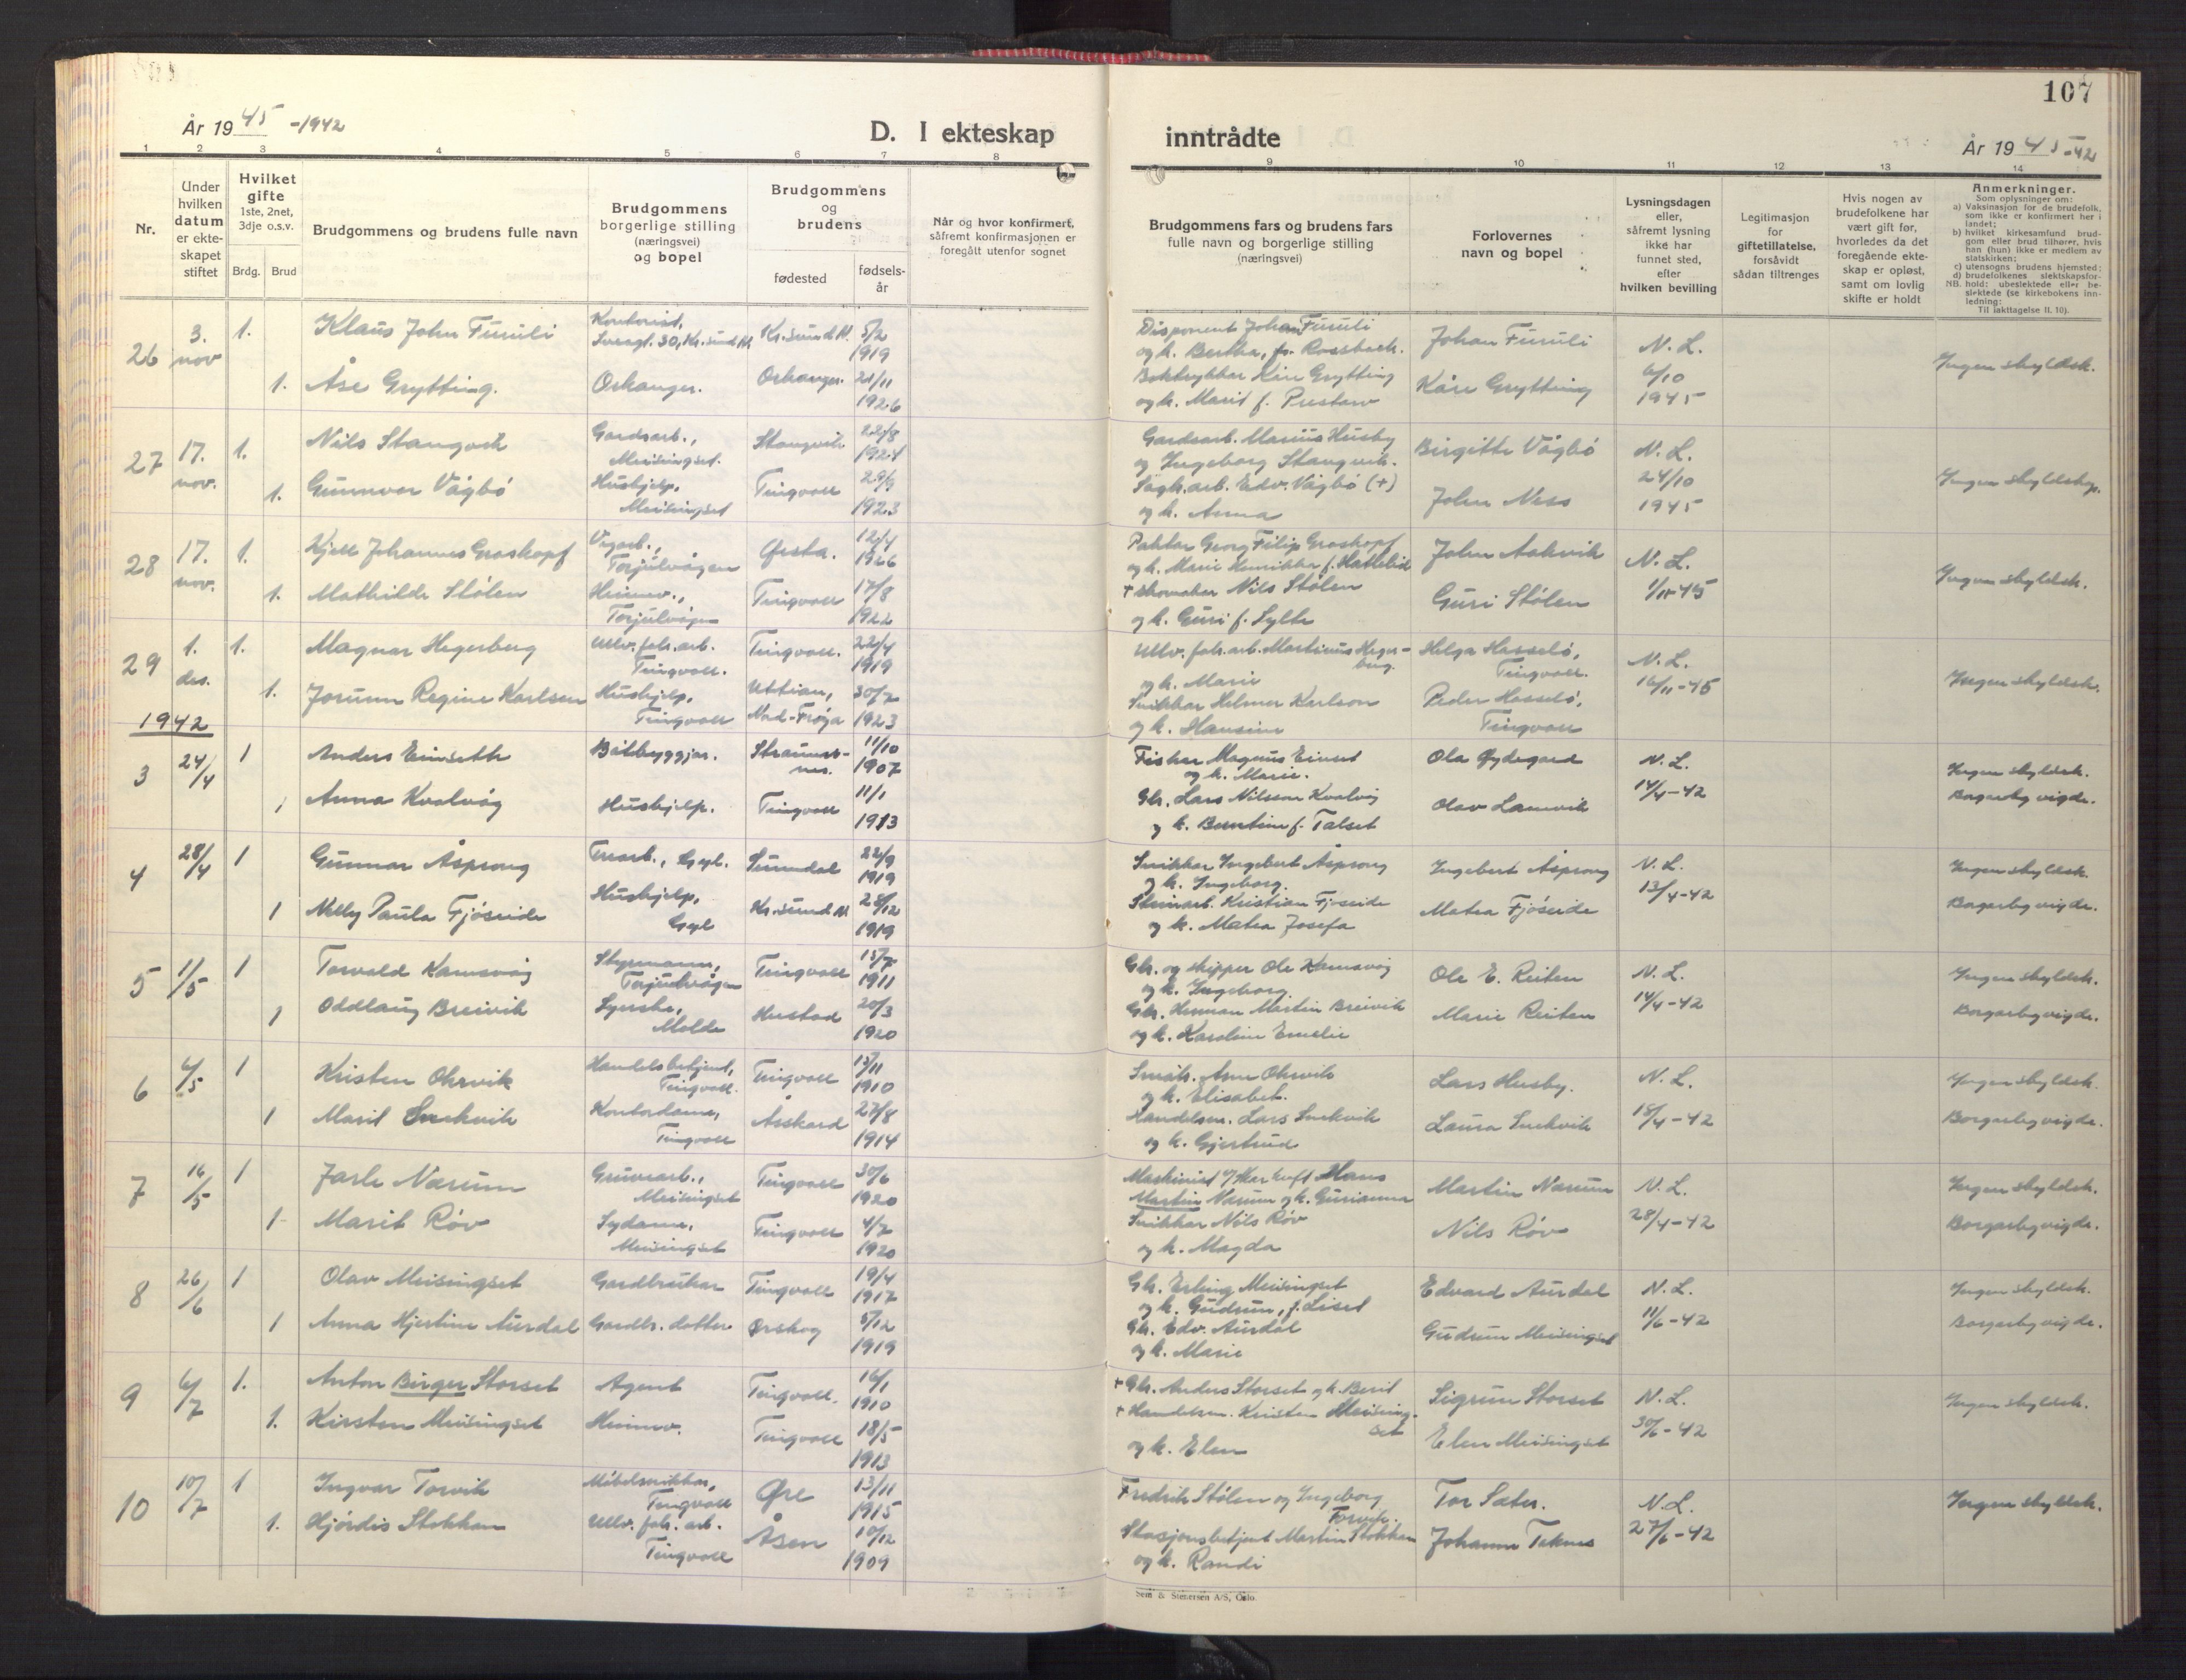 107
År 1945 -1942
D. I ekteskap
inntrådte
År 1945-42
1 2 3 4 5 6 7 8 9 10 11 12 13 14
Nr.
Under
hvilken
datum
er ekte-
skapet
stiftet
Hvilket
gifte
1ste, 2net,
3dje o.s.v.
Brdg. Brud
Brudgommens og brudens fulle navn
Brudgommens
borgerlige stilling
(næringsvei)
og bopel
Brudgommens
og
brudens
fødested
fødsels-
år
Når og hvor konfirmert,
såfremt konfirmasjonen er
foregått utenfor sognet
Brudgommens fars og brudens fars
fulle navn og borgerlige stilling
(næringsvei)
Forlovernes
navn og bopel
Lysningsdagen
eller,
såfremt lysning
ikke har
funnet sted,
efter
hvilken bevilling
Legitimasjon
for
giftetillatelse,
forsåvidt
sådan tiltrenges
Hvis nogen av
brudefolkene har
vært gift før,
hvorledes da det
foregående ekte-
skap er opløst,
samt om lovlig
skifte er holdt
Anmerkninger.
Som oplysninger om:
a) Vaksinasjon for de brudefolk,
som ikke er konfirmert her i
landet;
b) hvilket kirkesamfund brud-
gom eller brud tilhører, hvis
han (hun) ikke er medlem av
statskirken;
c) utensogns brudens hjemsted;
d) brudefolkenes slektskapsfor-
NB. hold: ubeslektede eller be-
slektede (se kirkebokens inn-
ledning:
Til iakttagelse II. 10).
26 3. nov 1. Klaus John Furuli Kontorist, 30, Kr.sund N. Kr.sund N. 5/2 1919 Disponent Johan Furuli og k. Bertha, f. Rossbach. Johan Furuli N. L. 6/10 1945 Ingen skyldsk.
1. Åse Grytting. Orkanger. Orkanger. 21/11 1926 Boktrykkar Kåre Grytting og k. Marit f. Kåre Grytting
27 17. nov. 1. Nils Stangvik Gardsarb., Meisingset. Stangvik 22/8 1924 Gardsarb. Marius Husby og Ingeborg Stangvik. Birgitte Vågbö N. L. 24/10 1945 Ingen skyldskap.
1. Gunnvor Vågbö Hushjelp, Meisingset Tingvoll 29/9 1923 Sagb.arb. Edv. Vågbö (+) og k. Anna John Ness
28 17. nov. 1. Kjell Johannes Groskopf Vegarb., Torjulvågen Ørsta. 12/4 1926 Georg Filip Groskopf og k. Marie Henrikke f. Hattlebid John Aakvik N. L. 1/11-45 Ingen skyldsk.
1. Mathilde Stölen Heimev., Torjulvågen Tingvoll 17/8 1922 + skomaker Nils Stölen og k. Guri f. Sylte Guri Stölen
29 1. des. 1. Magnar Hegerberg Ullv. fabr. arb. Tingvoll. Tingvoll. 22/4 1919 Ullv. fabr. arb. Martinus Heger-berg. og k. Marie Helga Hesselö, Tingvoll. N. L. 16/11-45 Ingen skyldsk.
1. Jorunn Regine Karlsen Hushjelp, Tingvoll Uttian, Nord-Frøya 30/7 1923 Snikkar Helmer Karlson og k. Hansine Peder Hesselö, Tingvoll
1942
3 24/4 1 Anders Einseth Båtbyggjar. Straums-nes. 11/10 1907 Fiskar Magnus Einset og k. Marie. Ola Øydegard N. L. 14/4-42 Ingen skyldsk. Borgarleg vigde.
1 Anna Kvalvåg Hushjelp. Tingvoll 11/1 1913 Gbr. Lars Nilsson Kvalvåg og k. Berntine f. Talset Olav Lamvik
4 28/4 1 Gunnar Åsprong Gyl. Sunndal 22/9 1919 Snikkar Ingebert Åsprong og k. Ingeborg. Ingebert Åsprong N. L. 13/4-42 Ingen skyldsk. Borgarleg vigde.
1 Nelly Paula Fjöseide Hushjelp, Gyl Kr.sund N 28/12 1919 Steinarb. Kristian Fjöseide og k. Matea Josefa Matea Fjöseide
5 1/5 1 Torvald Kamsvåg Styrmann, Torjulvågen Tingvoll 15/7 1911 Gbr. og skipper Ole Kamsvåg og k. Ingeborg Ole E. Reiten N. L. 14/4-42 Ingen skyldsk. Borgarleg vigde.
1 Oddlaug Breivik Syerske, Molde Hustad 20/3 1920 Gbr. Herman Martin Breivik og k. Karoline Emelie Marie Reiten
6 6/5 1 Kristen Ohrvik Handelsbetjent, Tingvoll. Tingvoll 15/11 1910 Småbr. Arne Ohrvik og k. Elisabet. Lars Husby. N. L. 18/4-42 Ingen skyldsk. Borgarleg vigde.
1 Marit Snekvik Kontordame, Tingvoll Åsskard 27/8 1914 Handelsm. Lars Snekvik og k. Gjertrud Laura Snekvik
7 16/5 1 Jarle Nærum Gruvearb., Meisingset Tingvoll 30/6 1920 Maskinist Hans Martin Nærum og k. Gurianna Martin Nærum N. L. 28/4-42 Ingen skyldsk. Borgarleg vigde.
1 Marit Röv Sydame, Meisingset Tingvoll 4/7 1920 Snikkar Nils Röv og k. Magda Nils Röv
8 26/6 1 Olav Meisingset Gardbrukar Tingvoll 19/4 1917 Gbr. Erling Meisingset og k. Gudrun, f. Liset Edvard Aurdal N. L. 11/6-42 Ingen skyldsk. Borgarleg vigde.
1 Anna Hjertine Aurdal Gardbr. dotter Ørskog 5/12 1919 Gbr. Edv. Aurdal og k. Marie Gudrun Meisingset
9 6/7 1. Anton Birger Storset Agent Tingvoll. 16/1 1910 + Gbr. Anders Storset og k. Berit Sigrun Storset N. L. 30/6-42 Ingen skyldsk.
1. Kirsten Meisingset Heimev. Tingvoll 18/5 1913 + Handelsm. Kristen Meising-set og k. Elen Elen Meisingset
10 10/7 1 Ingvar Torvik Möbelsnikkar, Tingvoll Øre 13/11 1915 Fredrik Stölen og Ingeborg Torvik. Tor Sæter. N.L. 27/6-42 Ingen skyldsk.
1. Hjördis Stokkan Ullv. fabr. arb. Tingvoll Åsen 10/12 1909 Stasjonsbetjent Martin Stokkan og k. Randi Johanne Teknes
Sem & Stenersen A/S, Oslo.